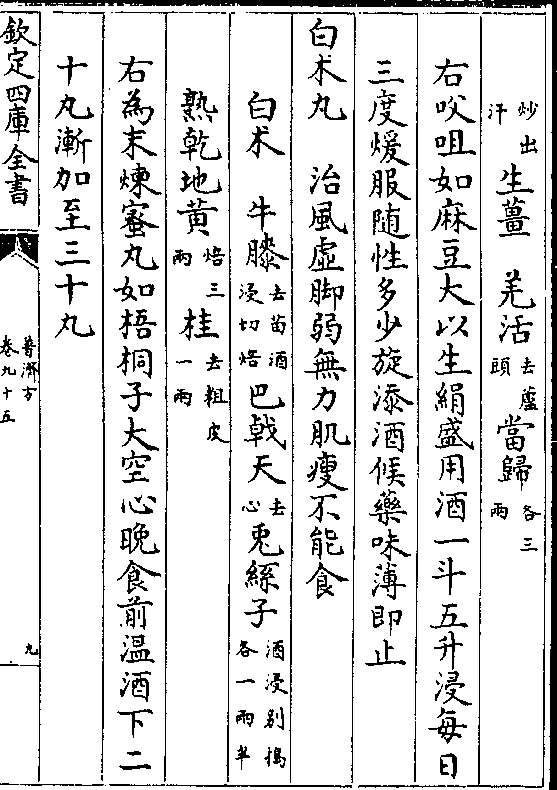 炒出汗生薑　羌活去蘆頭當歸各三兩
右㕮咀如麻豆大以生絹盛用酒一斗五升浸每日
三度煖服隨性多少旋添酒候藥味薄即止
白朮丸　治風虛脚弱無力肌瘦不能食
白朮　牛膝去苗酒浸切焙巴戟天去心兎絲子酒浸别搗各一兩半
熟乾地黄焙三兩桂去粗皮一兩
右為末煉蜜丸如梧桐子大空心晚食前温酒下二
十丸漸加至三十丸
欽定四庫全書
普濟方
卷九十五
九